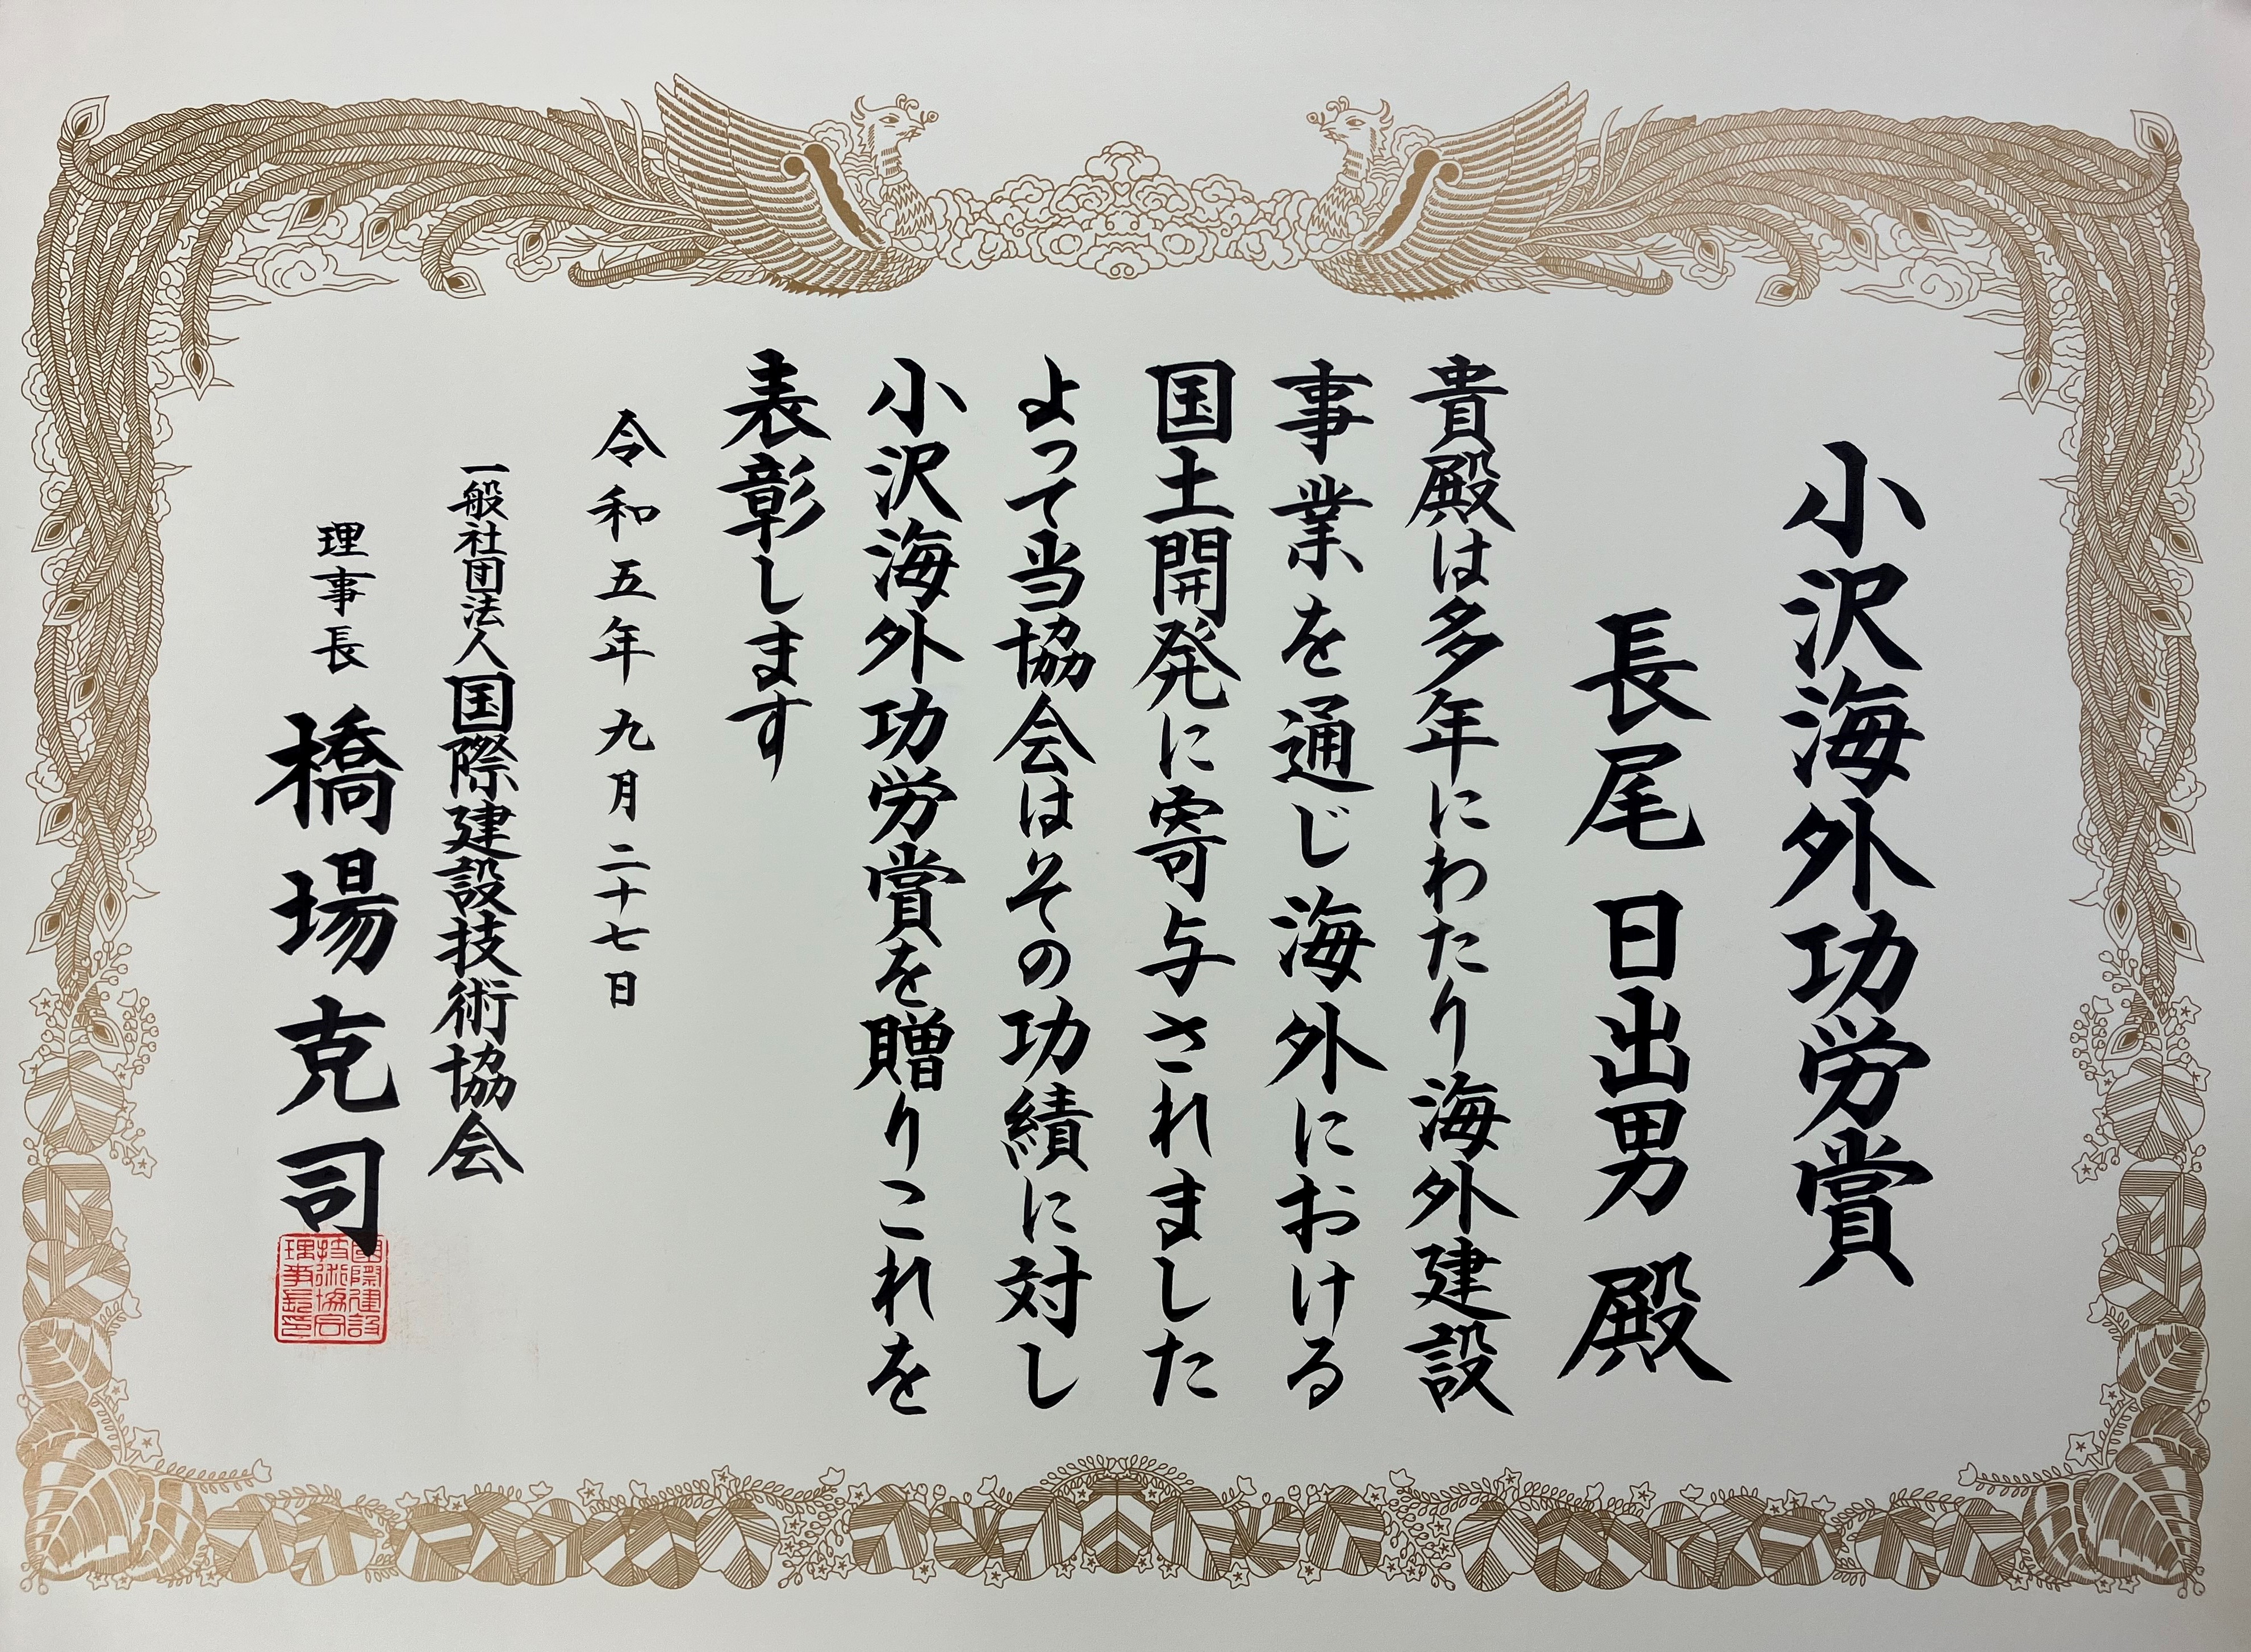 小沢海外功労賞
長尾日出男 殿
貴殿は多年にわたり海外建設
事業を通じ海外における
国土開発に寄与されました
よって当協会はその功績に対し
小沢海外功労賞を贈りこれを
表彰します
令和五年九月二十七日
一般社団法人国際建設技術協会
理事長 橋場克司
國際建設
技術協会
理事長印